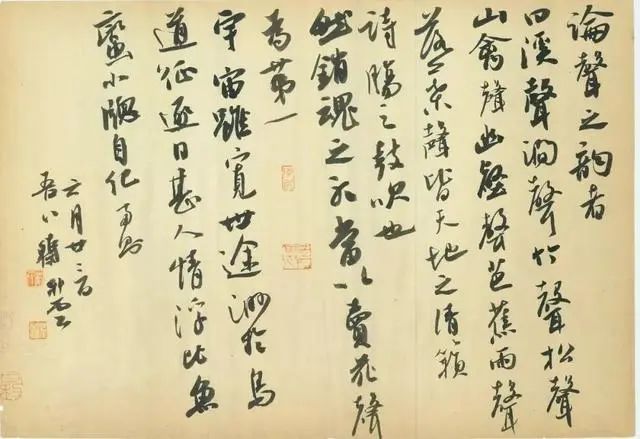 論聲之韻者
曰溪聲澗聲竹聲松聲
山禽聲幽壑聲芭蕉雨聲
落葉聲皆天地之清籟
詩腸之鼓吹也
然銷魂之聽當以賣花聲
為第一
宇宙雖寬世途渺於鳥
道征逐日甚人情浮比魚
蠻小牕自紀兩則
六月廿三日